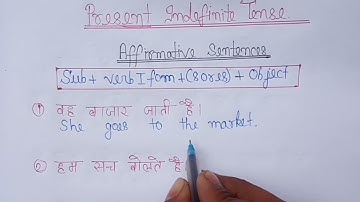 Present Indefinite Tense
Affromative Sentences
Sub + verb I fom + (s or es) + Object
① वह बाजार जाती है।
She goes to the market.
② हम सच बोलते है